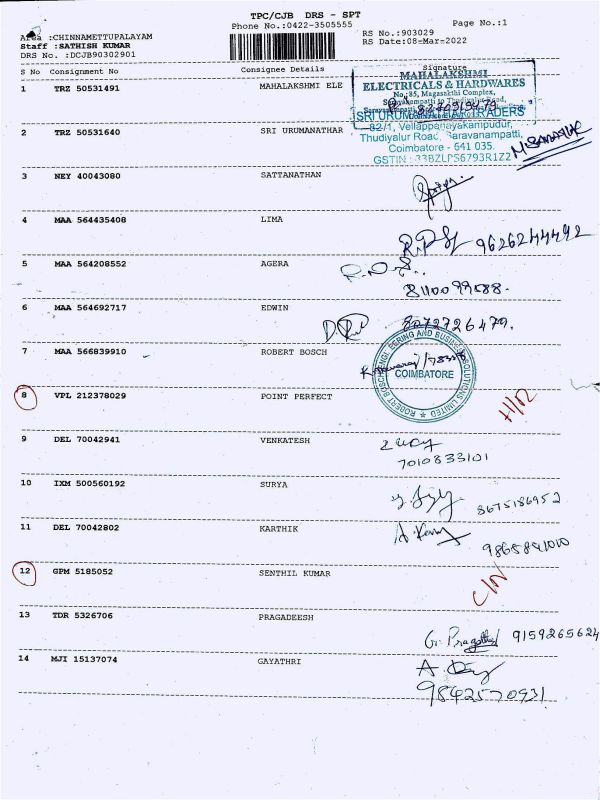 TPC/CJB DRS - SPT
Phone No.:0422-3505555 Page No.:1
Area :CHINNAMETTUPALAYAM RS No.:903029
Staff :SATHISH KUMAR RS Date:08-Mar-2022
DRS No. :DCJB90302901
S No Consignment No Consignee Details Signature
1 TRZ 50531491 MAHALAKSHMI ELE
MAHALAKSHMI
ELECTRICALS & HARDWARES
No.:85, Magasakthi Complex,
Saravanampatti to Thudiyalur Road,
2 TRZ 50531640 SRI URUMANATHAR
SRI URUMANATHAR TRADERS
82/1, Vellappanayakanipudur,
Thudiyalur Road, Saravanampatti,
Coimbatore - 641 035.
GSTIN : 33BZLPS6793R1Z2
3 NEY 40043080 SATTANATHAN
4 MAA 564435408 LIMA
9626244492
5 MAA 564208552 AGERA
6 MAA 564692717 EDWIN
8072726479.
7 MAA 566839910 ROBERT BOSCH
ROBERT BOSCH ENGINEERING AND BUSINESS SOLUTIONS LIMITED
COIMBATORE
8 VPL 212378029 POINT PERFECT
9 DEL 70042941 VENKATESH
7010833101
10 IXM 500560192 SURYA
8675186952
11 DEL 70042802 KARTHIK
12 GPM 5185052 SENTHIL KUMAR
13 TDR 5326706 PRAGADEESH
9159265624
14 MJI 15137074 GAYATHRI
9842570931